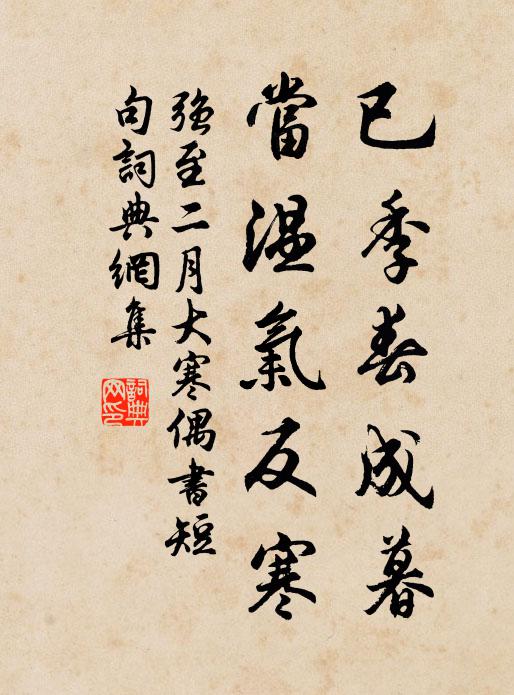 已季春成暮
當温氣反寒
強至二月大寒偶書短
句詞典網集
詞典
网印